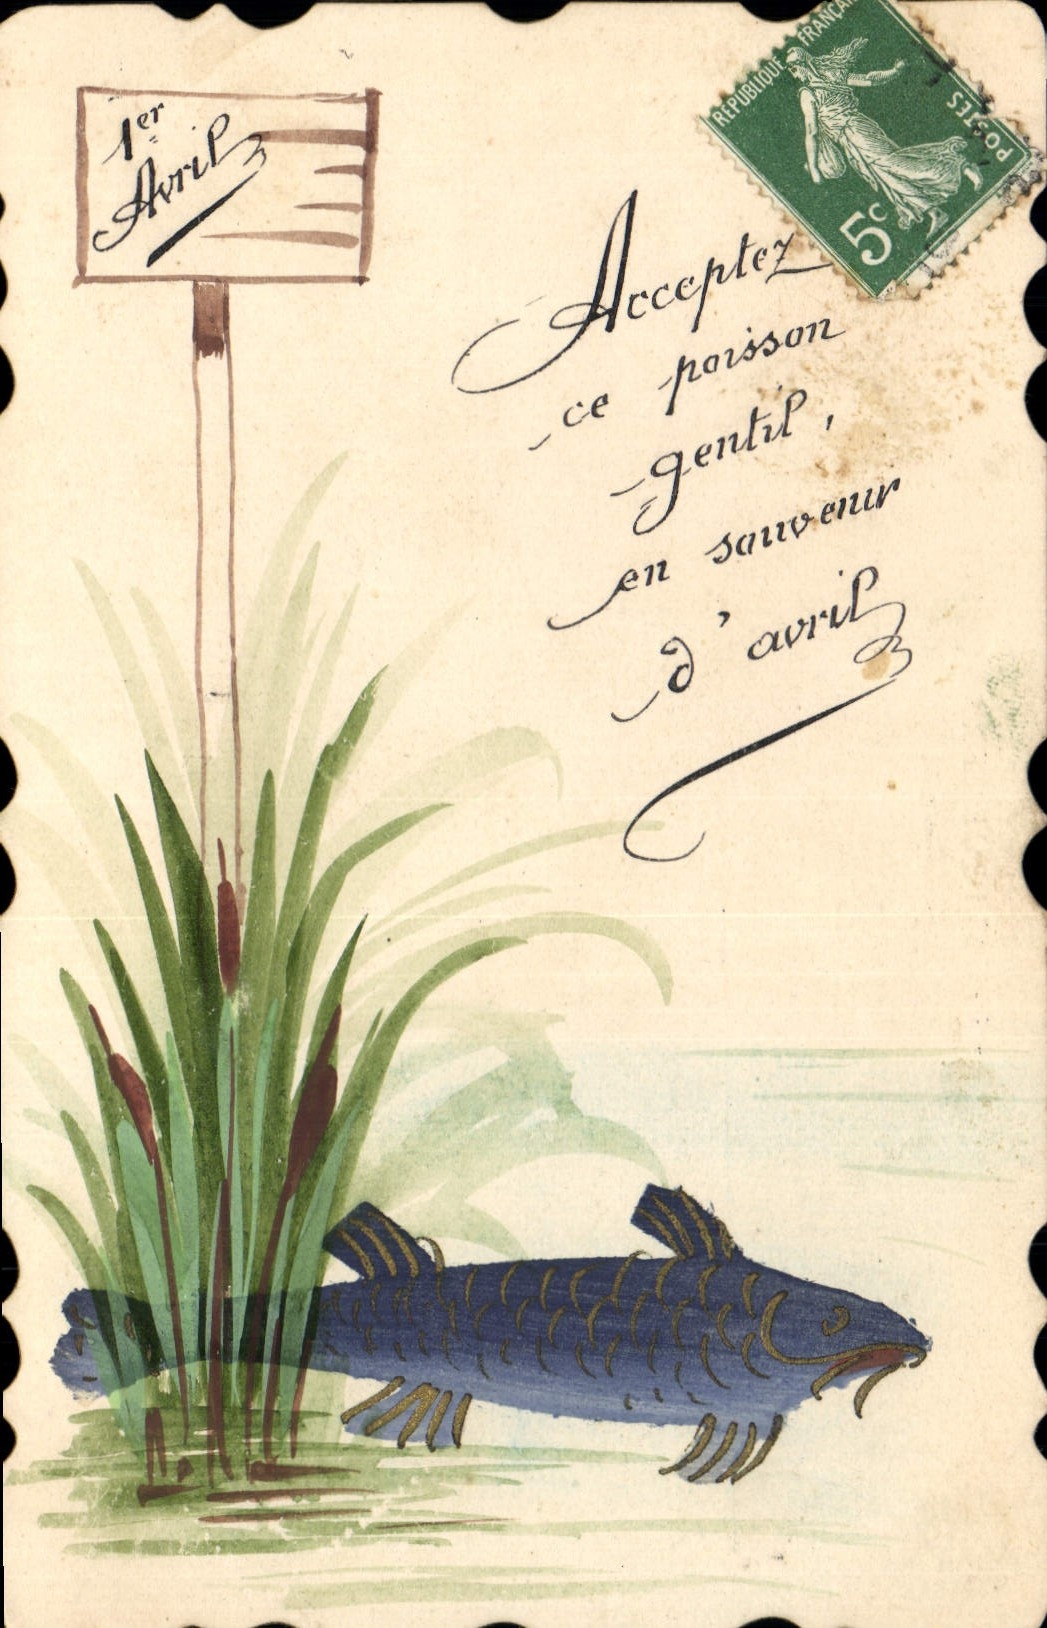 1er
Avril
RÉPUBLIQUE FRANÇAISE
POSTES
5c
Acceptez
ce poisson
gentil,
en souvenir
d'avril